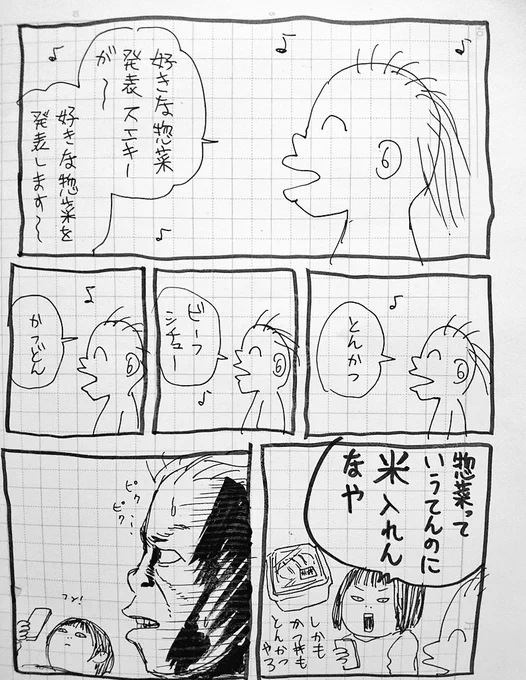 好きな惣菜
発表スエキー
が〜
好きな惣菜を
発表します〜
とんかつ
ビーフ
シチュー
かつどん
惣菜って
いうてんのに
米入れん
なや
しかも
かつ丼も
とんかつ
やろ
ピク
ピク…
フン!